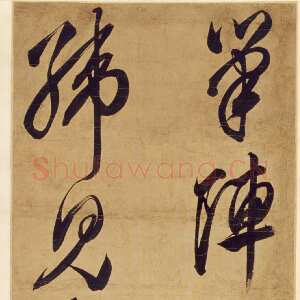 筆陣
見
Shufawang.cn